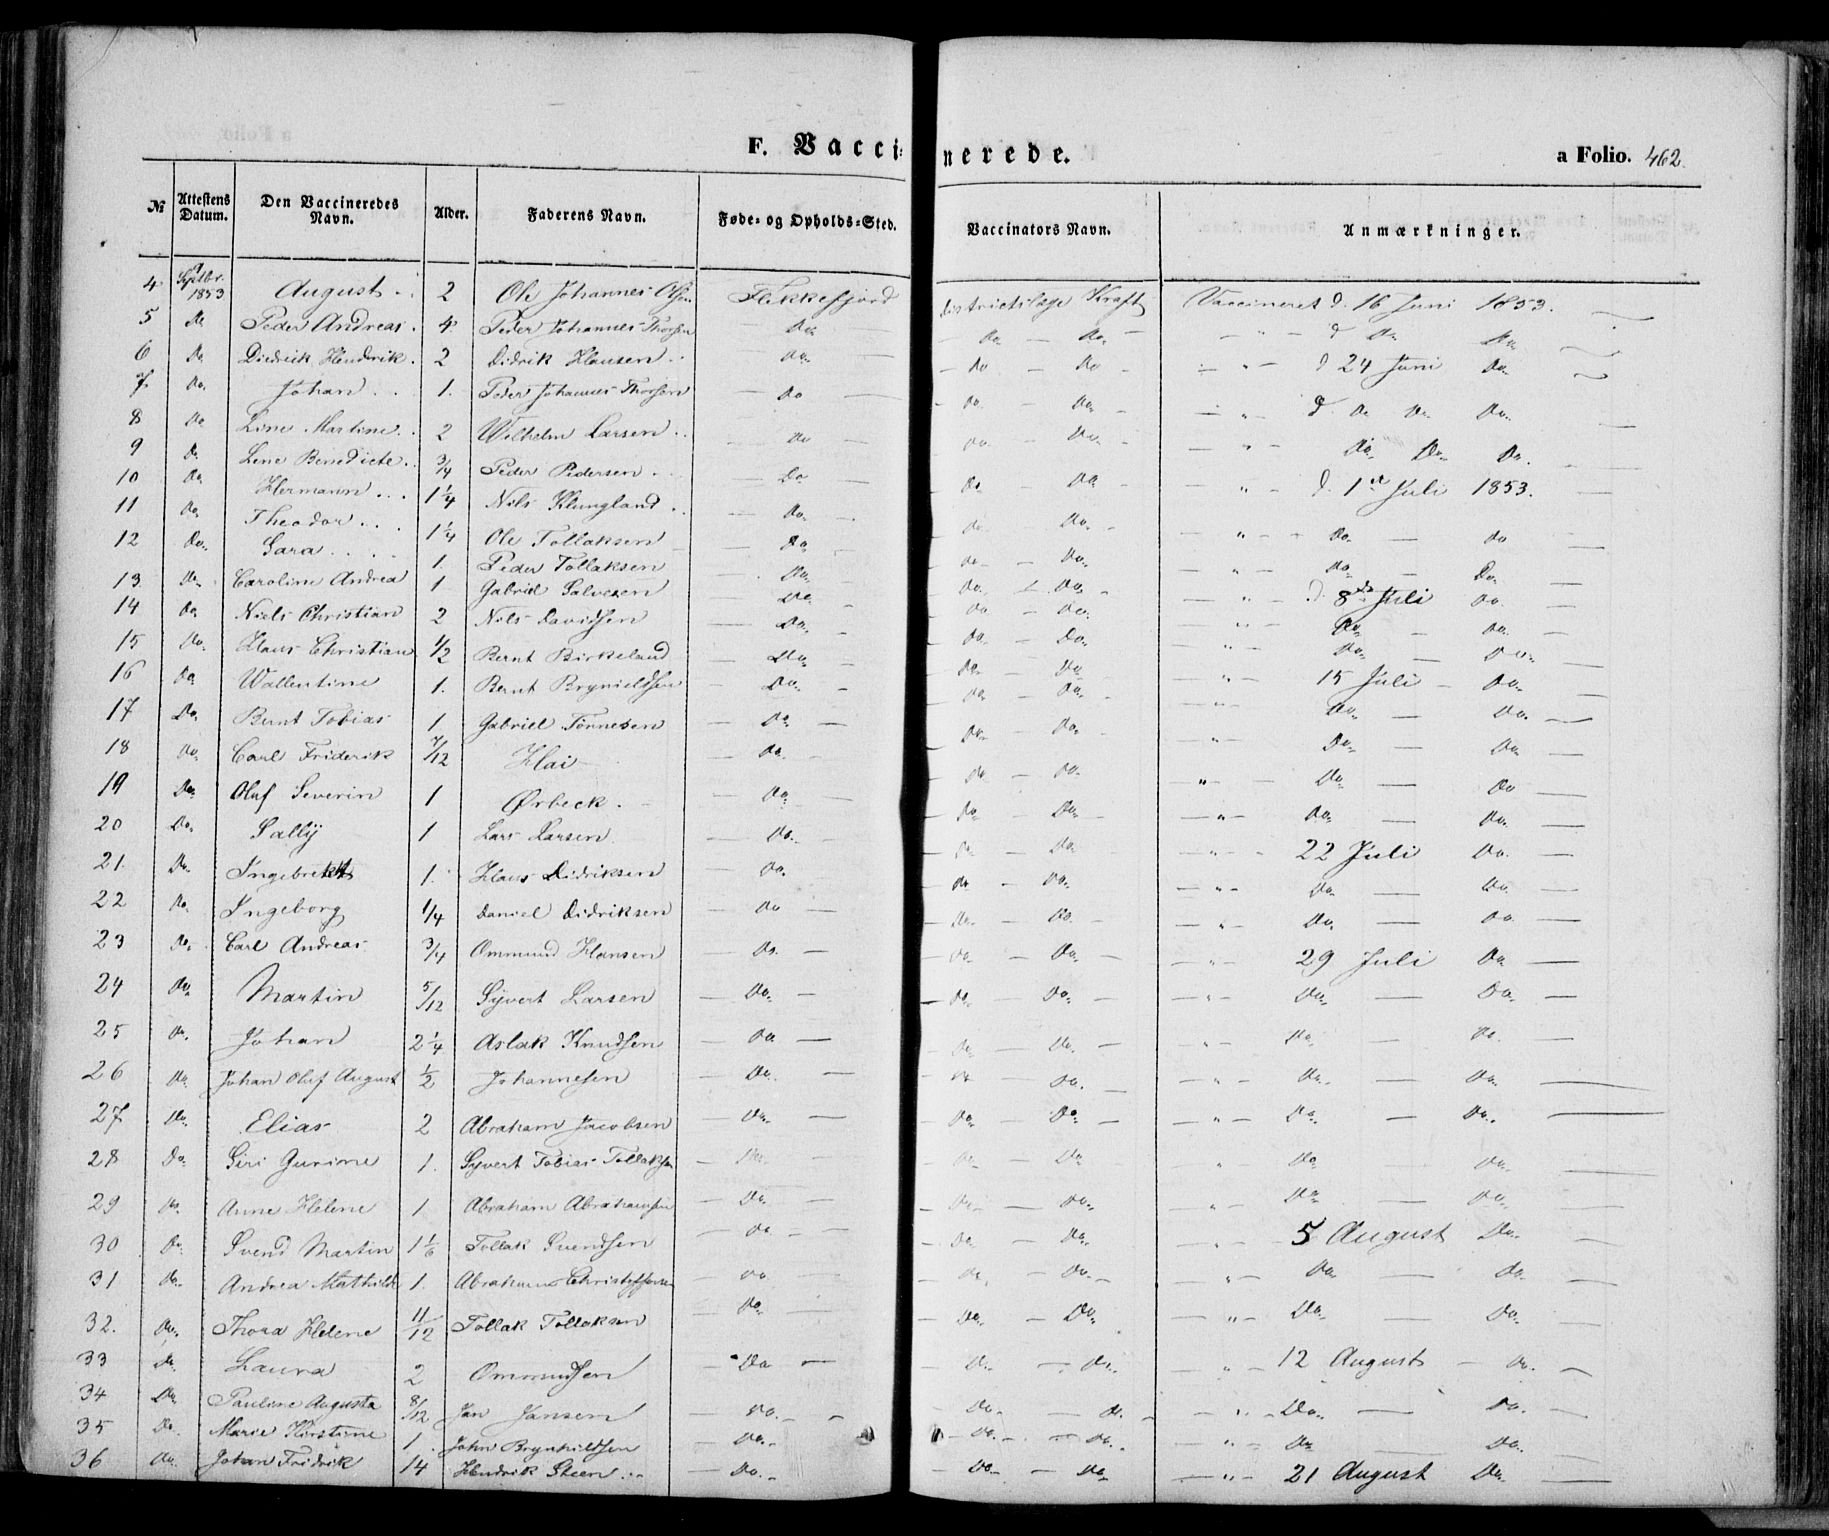 F. Vaccinerede. a Folio. 462.
№ Attestens Datum. Den Vaccineredes Navn. Alder. Faderens Navn. Føde- og Opholds-Sted. Vaccinators Navn. Anmærkninger.
4 Septbr. 1853 August 2 Ole Johannes Olsen Flekkefjord Districtslæge Kraft Vaccineret d. 16 Juni 1853.
5 Do Peder Andreas 4 Peder Johannes Thorsen Do Do Do " d Do Do
6 Do Diedrich Hendrik 2 Didrik Hansen Do Do Do " d 24 Juni Do
7 Do Johan 1. Peder Johannes Thorsen Do Do Do " d. Do Do Do
8 Do Line Martine 2 Wilhelm Larsen Do Do Do " Do Do Do
9 Do Lene Benedicte 3/4 Peder Pedersen Do Do Do " d. 1st Juli 1853.
10 Do Hermann 1 1/4 Nils Klungland Do Do Do " Do Do
11 Do Theodor 1 1/4 Ole Tollaksen Do Do Do " Do Do
12 Do Sara 1 Peder Tollaksen Do Do Do " d. 8de Juli Do
13 Do Caroline Andrea 1 Gabriel Salvesen Do Do Do " Do Do
14 Do Niels Christian 2 Nils Davidsen Do Do Do " Do Do
15 Do Hans Christian 1/2 Bernt Birkeland Do Do Do " 15 Juli Do
16 Do Wallentine 1. Bernt Brynieldsen Do Do Do " Do Do
17 Do Bernt Tobias 1 Gabriel Tønnesen Do Do Do " Do Do
18 Do Carl Friderik 7/12 Klai Do Do Do " Do Do
19 Do Oluf Severin 1 Ørbeck Do Do Do " Do Do
20 Do Sally 1 Lars Larsen Do Do Do " 22 Juli Do
21. Do Ingebrekt 1. Hans Didriksen Do Do Do " Do Do
22 Do Ingeborg 1/4 Daniel Didriksen Do Do Do " Do Do
23 Do Carl Andreas 3/4 Ommund Hansen Do Do Do " 29 Juli Do
24 Do Martin 5/12 Syvert Larsen Do Do Do " Do Do
25 Do Johan 2 1/4 Aslak Knudsen Do Do Do Do Do
26 Do Johan Oluf August 1/2 Johannesen Do Do Do " Do Do
27 Do Elias 2 Abraham Jacobsen Do Do Do " Do Do
28 Do Siri Gurine 1. Syvert Tobias Tollaksen Do Do Do " Do Do
29 Do Anne Helene 1 Abraham Abrahamsen Do Do Do " Do Do
30 Do Svend Martin 1 1/6 Tollak Svendsen Do Do Do " 5 August Do
31 Do Andrea Mathilde 1. Abraham Christoffersen Do Do Do " Do Do
32. Do Thora Helene 11/12 Tollak Tollaksen Do Do Do " Do Do
33 Do Laura 2 Ommundsen Do Do Do " 12 August Do
34 Do Pauline Augusta 8/12 Jan Jansen Do Do Do " Do Do
35 Do Marie Kirstine 1. John Brynhildsen Do Do Do " Do Do
36 Do Johan Fridrik 14 Hendrik Steen Do Do Do " 21 August Do